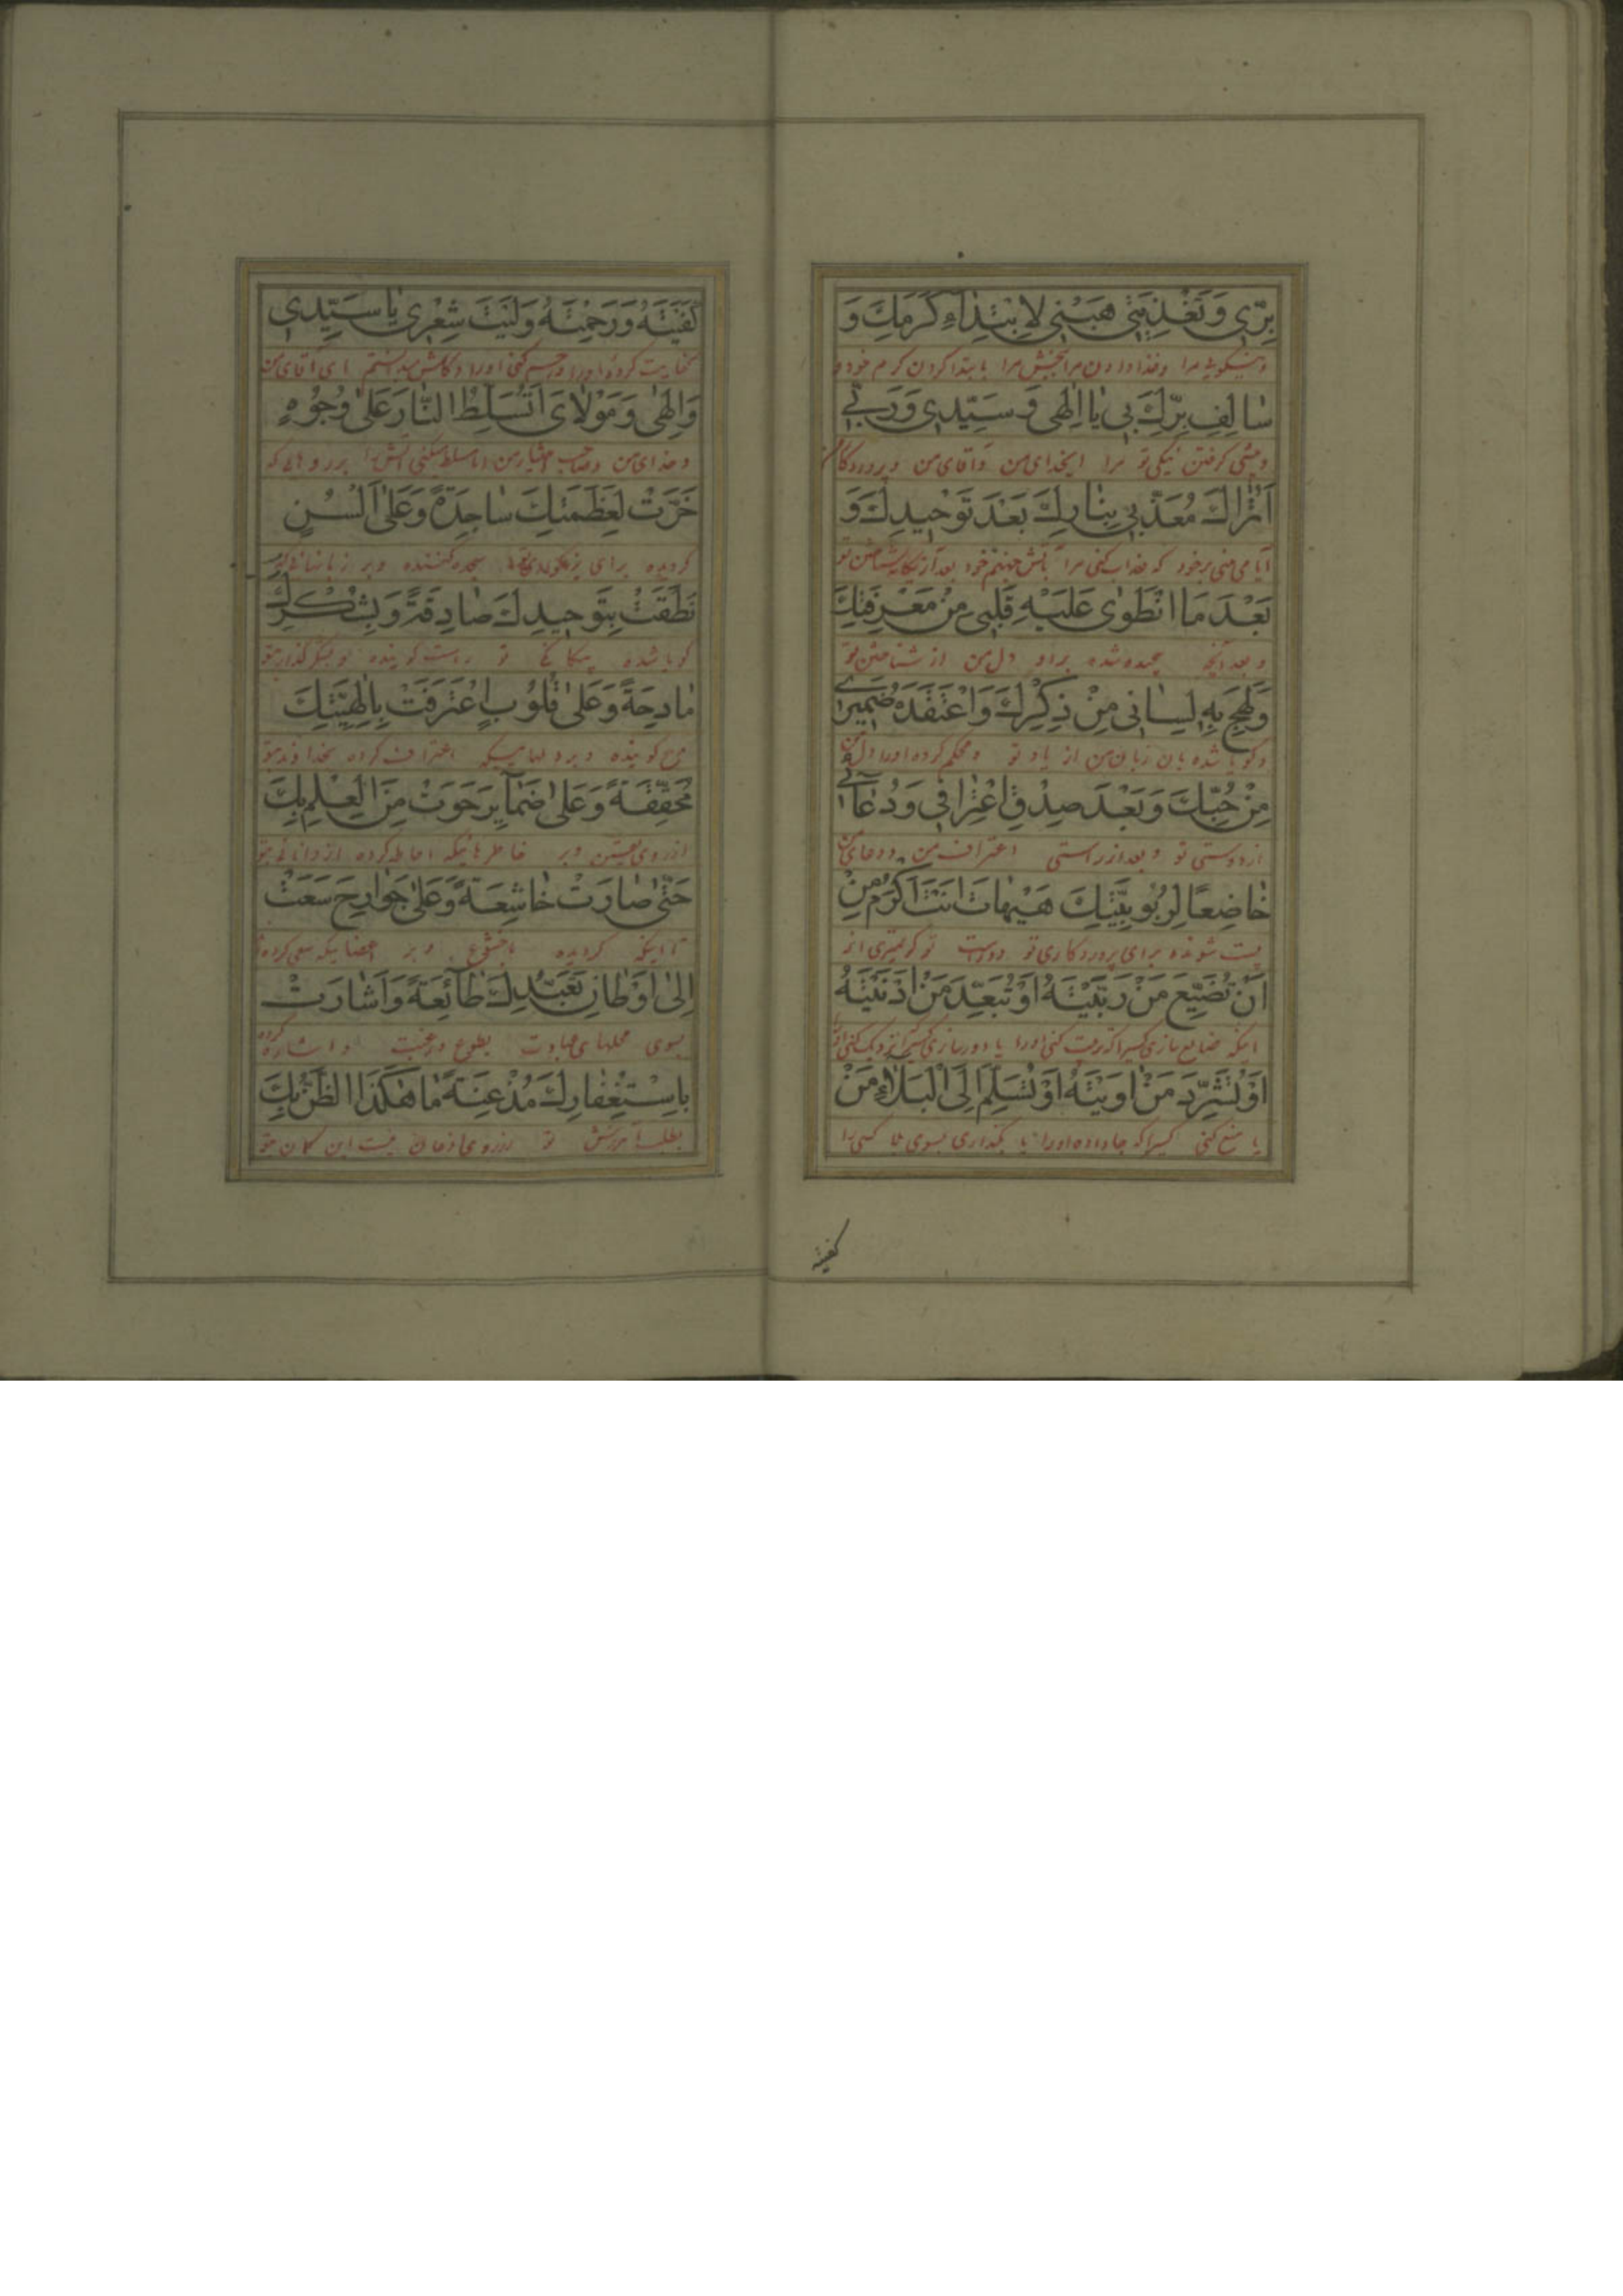 بِرّي وَتَغْذِيَتي هَبْني لِابْتِدٰآءِ كَرَمِكَ وَ
ونیکوئی مرا وغذا دادن مرا ببخش مرا بابتدا کردن کرم خود و
سٰالِفِ بِرِّكَ بي يٰا اِلٰهي وَ سَيِّدي وَرَبّي
وپیشی گرفتن نیکی تو مرا ایخدای من وآقای من وپروردگار
اَتُرٰاكَ مُعَذِّبي بِنٰارِكَ بَعْدَ تَوْحيدِكَ وَ
آیا می بینی برخود که عذاب کنی مرا بآتش جهنم خود بعد از
بَعْدَ مَا انْطَوٰى عَلَيْهِ قَلْبي مِنْ مَعْرِفَتِكَ
و بعد آنچه پیچیده شده براو دل من از شناختن تو
وَلَهِجَ بِهٖ لِسٰاني مِنْ ذِكْرِكَ وَاعْتَقَدَهُ ضَميري
وگویا شده بان زبان من از یاد تو ومحکم کرده اورا دل من
مِنْ حُبِّكَ وَبَعْدَ صِدْقِ اعْتِرٰافي وَدُعٰآئي
از دوستی تو وبعد از راستی اعتراف من ودعای من
خٰاضِعًا لِرُبُوبِيَّتِكَ هَيْهٰاتَ اَنْتَ اَكْرَمُ مِنْ
پست شونده برای پروردگاری تو دوراست تو کریمتری از
اَنْ تُضَيِّعَ مَنْ رَبَّيْتَهُ اَوْ تُبَعِّدَ مَنْ اَدْنَيْتَهُ
اینکه ضایع سازی کسیراکه تربیت کنی اورا یا دور سازی کسیراکه نزدیک کنی
اَوْ تُشَرِّدَ مَنْ اٰوَيْتَهُ اَوْ تُسَلِّمَ اِلَى الْبَلٰاءِ مَنْ
یا منع کنی کسیراکه جا داده اورا یا بگذاری بسوی بلا کسی را
كفيته
كَفَيْتَهُ وَرَحِمْتَهُ وَلَيْتَ شِعْري يٰا سَيِّدي
کفایت کرده اورا ورحم کنی اورا وکاش میدانستم ای آقای من
وَاِلٰهي وَمَوْلٰايَ اَتُسَلِّطُ النّٰارَ عَلىٰ وُجُوهٍ
وخدای من وصاحب اختیار من ایا مسلط میکنی آتش را بر روهائی که
خَرَّتْ لِعَظَمَتِكَ سٰاجِدَةً وَعَلىٰ اَلْسُنٍ
گردیده برای بزرگواری تو سجده کننده وبر زبانهائی که
نَطَقَتْ بِتَوْحيدِكَ صٰادِقَةً وَبِشُكْرِكَ
گویا شده بیگانگی تو راست گوینده وبشکرگذاری تو
مٰادِحَةً وَعَلىٰ قُلُوبٍ اعْتَرَفَتْ بِاِلٰهِيَّتِكَ
مدح گوینده وبر دلهائیکه اعتراف کرده بخداوندی تو
مُحَقِّقَةً وَعَلىٰ ضَمٰآئِرَ حَوَتْ مِنَ الْعِلْمِ بِكَ
از روی یقین وبر خاطرهائیکه احاطه کرده از دانائی بتو
حَتّٰى صٰارَتْ خٰاشِعَةً وَعَلىٰ جَوٰارِحَ سَعَتْ
تا اینکه گردیده باخشوع وبر اعضائیکه سعی کرده
اِلىٰ اَوْطٰانِ تَعَبُّدِكَ طٰآئِعَةً وَاَشٰارَتْ
بسوی محلهای عبادت بطوع ورغبت واشاره کرده
بِاسْتِغْفٰارِكَ مُذْعِنَةً مٰا هٰكَذَا الظَّنُّ بِكَ
بطلب آمرزش تو از روی اذعان نیست این گمان بتو